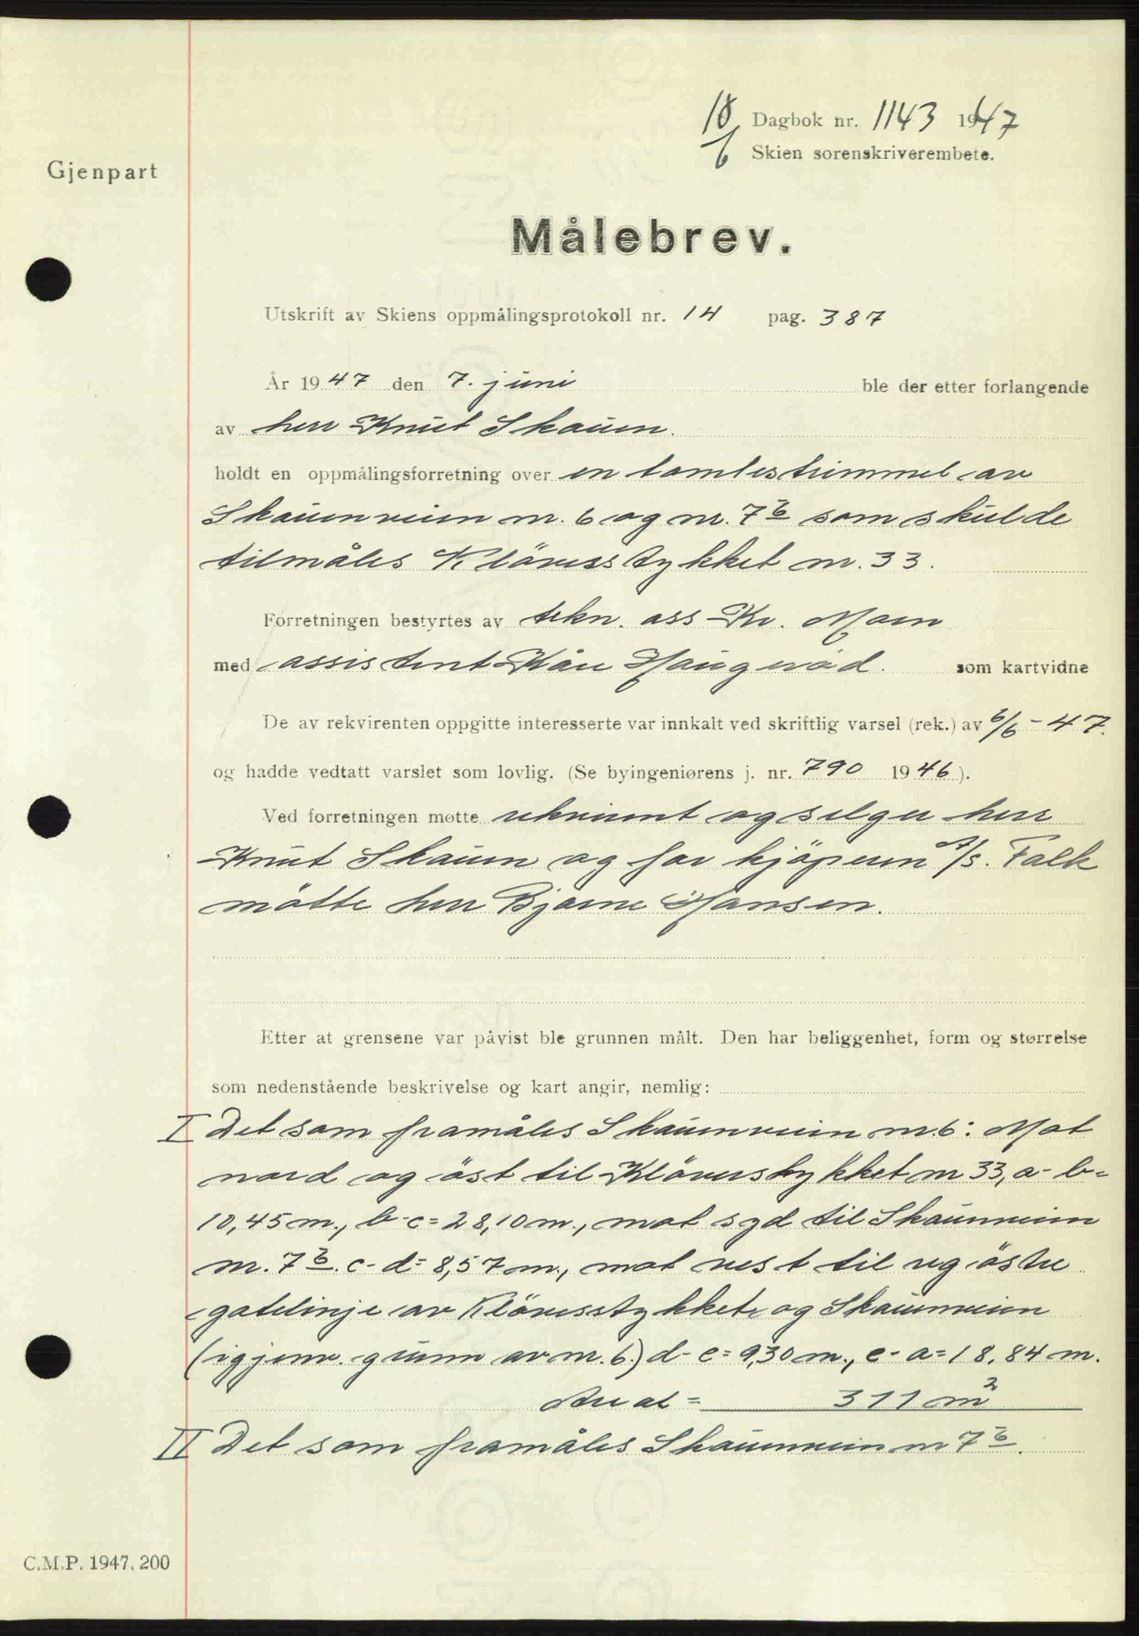 18/6 Dagbok nr. 1143 1947
Skien sorenskriverembete.
Gjenpart
Målebrev.
Utskrift av Skiens oppmålingsprotokoll nr. 14 pag. 387
År 1947 den 7. juni ble der etter forlangende
av herr Knut Skaum.
holdt en oppmålingsforretning over en tomtestrimmel av
Skaumveien nr. 6 og nr. 7b som skulde
tilmåles Klöverstykket nr. 33.
Forretningen bestyrtes av tekn. ass Kr. Moen
med assistent Kåre Haugerød. som kartvidne
De av rekvirenten oppgitte interesserte var innkalt ved skriftlig varsel (rek.) av 6/6 - 47.
og hadde vedtatt varslet som lovlig. (Se byingeniørens j. nr. 790 1946).
Ved forretningen møtte rekvirent og selger herr
Knut Skaum og for kjöperen A/S. Falk
mötte herr Bjarne Hansen.
Etter at grensene var påvist ble grunnen målt. Den har beliggenhet, form og størrelse
som nedenstående beskrivelse og kart angir, nemlig:
I Det som framåles Skaumveien nr. 6: Mot
nord og öst til Klöverstykket nr 33, a-b=
10,45 m., b-c= 28,10 m., mot syd til Skaumveien
nr. 7b. c-d= 8,57 m., mot vest til reg östre
gatelinje av Klöverstykket og Skaumveien
(igjenv. grunn av nr. 6.) d-e= 9,30 m., e-a= 18,84 m.
Areal = 311 m2
II Det som framåles Skaumveien nr 7b.
C.M.P. 1947. 200